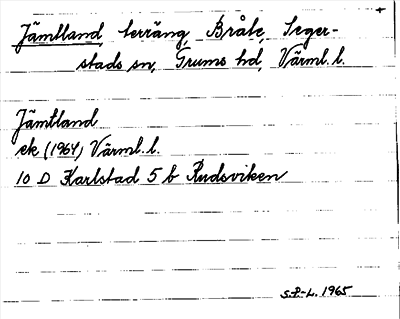 +
Jämtland, terräng, Bråte, Seger-
stads sn, Grums hd, Värml. l.
Jämtland
ek (1964) Värml. l.
10 D Karlstad 5 b Rudsviken
S.P-L. 1965